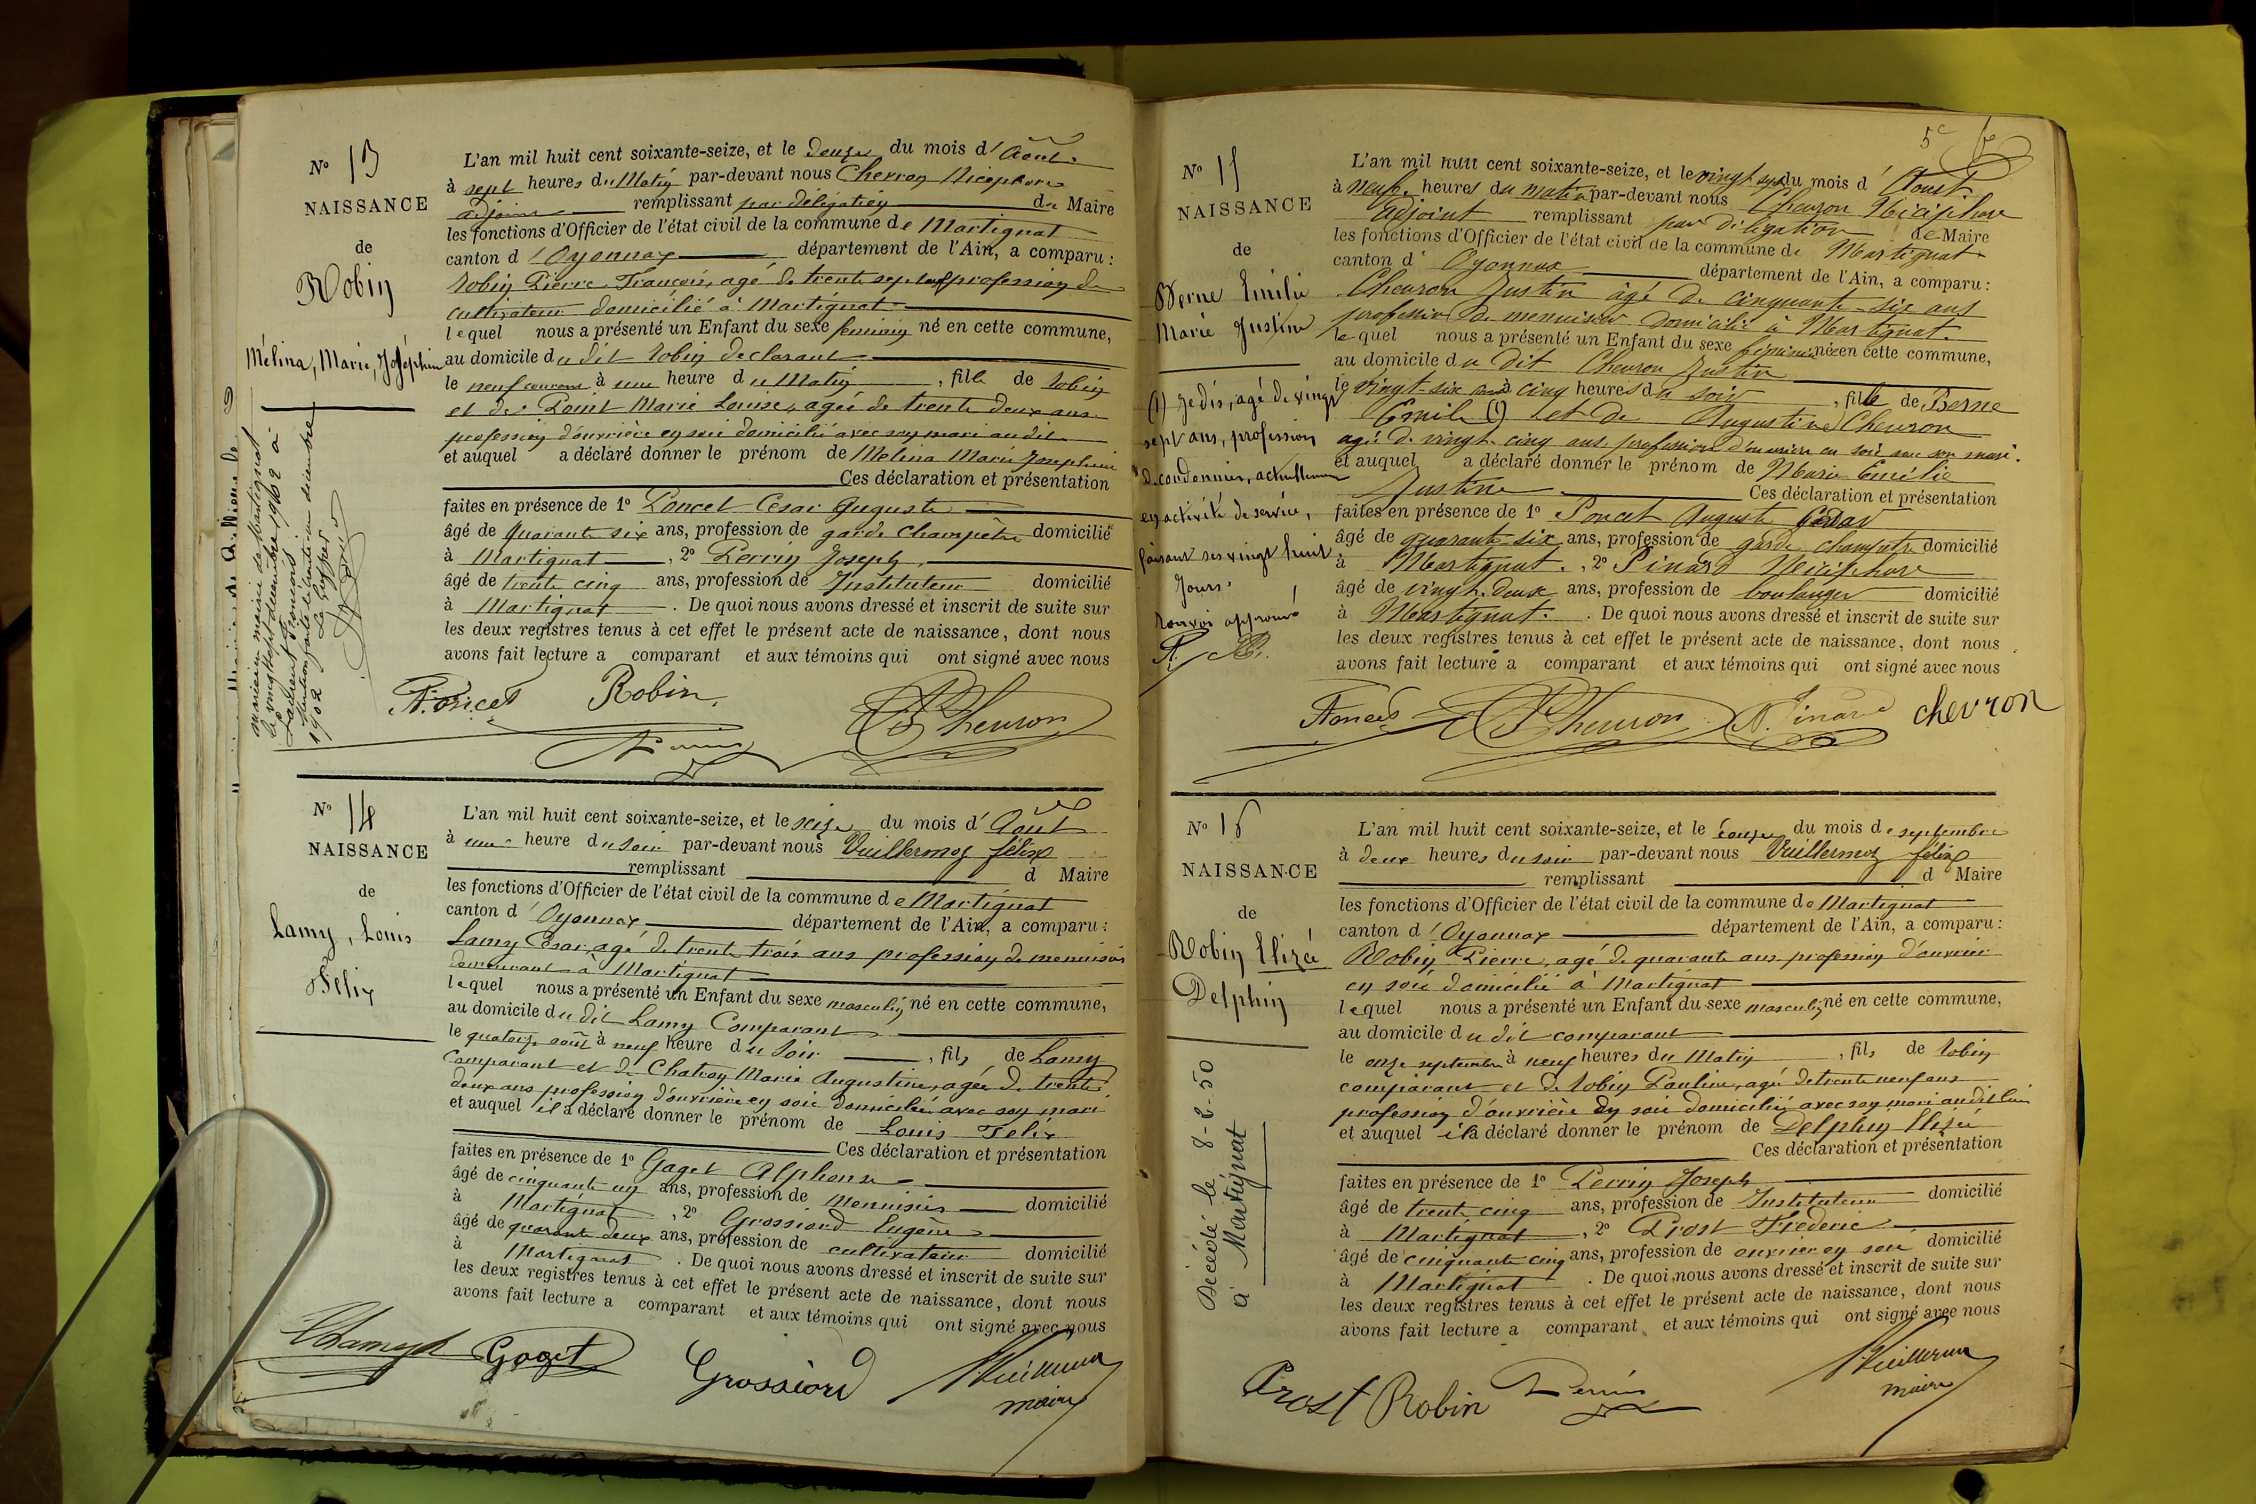 N° 13
NAISSANCE
de
Robin
Mélina, Marie, Joséphine
L'an mil huit cent soixante-seize, et le douze du mois d'Août
à sept heures du Matin par-devant nous Chevron Nicéphore
adjoint remplissant par délégation du Maire
les fonctions d'Officier de l'état civil de la commune de Martignat
canton d'Oyonnax département de l'Ain, a comparu :
Robin Pierre François, agé de trente sept ans profession de
cultivateur domicilié à Martignat
lequel nous a présenté un Enfant du sexe féminin né en cette commune,
au domicile du dit Robin déclarant
le neuf courant à une heure du Matin, fille de Robin
et de Point Marie Louise, agée de trente deux ans
profession d'ouvrière en soie domicilié avec son mari audit
et auquel a déclaré donner le prénom de Mélina Marie Joséphine
Ces déclaration et présentation
faites en présence de 1° Poncet César Auguste
âgé de Quarante six ans, profession de garde champêtre domicilié
à Martignat, 2° Perrin Joseph
âgé de trente cinq ans, profession de Instituteur domicilié
à Martignat. De quoi nous avons dressé et inscrit de suite sur
les deux registres tenus à cet effet le présent acte de naissance, dont nous
avons fait lecture a comparant et aux témoins qui ont signé avec nous
mairie de Martignat
le vingt sept décembre 1902 à
1902 Le Greffier
A. Poncet Robin Chevron
Perrin
N° 14
NAISSANCE
de
Lamy, Louis
Félix
L'an mil huit cent soixante-seize, et le seize du mois d'Août
à une heure du soir par-devant nous Vuillermoz félix
remplissant d Maire
les fonctions d'Officier de l'état civil de la commune de Martignat
canton d'Oyonnax département de l'Ain, a comparu :
Lamy César, agé de trente trois ans profession de menuisier
demeurant à Martignat
lequel nous a présenté un Enfant du sexe masculin né en cette commune,
au domicile du dit Lamy Comparant
le quatorze août à neuf heure du soir, fils de Lamy
Comparant et de Chatron Marie Augustine, agée de trente
deux ans profession d'ouvrière en soie domiciliée avec son mari
et auquel il a déclaré donner le prénom de Louis Félix
Ces déclaration et présentation
faites en présence de 1° Gaget Alphonse
âgé de cinquante un ans, profession de Menuisier domicilié
à Martignat, 2° Grossiord Eugène
âgé de quarante deux ans, profession de cultivateur domicilié
à Martignat. De quoi nous avons dressé et inscrit de suite sur
les deux registres tenus à cet effet le présent acte de naissance, dont nous
avons fait lecture a comparant et aux témoins qui ont signé avec nous
Gaget Grossiord Vuillermoz
maire
5e
N° 15
NAISSANCE
de
Berne Emilie
Marie Justine
(1) je dis, agé de vingt
sept ans, profession
de cordonnier, actuellement
en activité de service,
faisant ses vingt huit
jours.
Renvoi approuvé
L'an mil huit cent soixante-seize, et le vingt sept du mois d'Août
à neuf heures du matin par-devant nous Chevron Nicéphore
adjoint remplissant par déligation de Maire
les fonctions d'Officier de l'état civil de la commune de Martignat
canton d'Oyonnax département de l'Ain, a comparu :
Chevron Justin âgé de cinquante-six ans
profession de menuisier domicilié à Martignat.
lequel nous a présenté un Enfant du sexe féminin né en cette commune,
au domicile du dit Chevron Justin
le vingt-six août à cinq heures du soir, fille de Berne
Emile (1) et de Augustine Chevron
agée de vingt-cinq ans profession d'ouvrière en soie avec son mari.
et auquel a déclaré donner le prénom de Marie Emilie
Justine Ces déclaration et présentation
faites en présence de 1° Poncet Auguste César
âgé de quarante-six ans, profession de garde champêtre domicilié
à Martignat., 2° Pinard Nicéphore
âgé de vingt-deux ans, profession de boulanger domicilié
à Martignat. De quoi nous avons dressé et inscrit de suite sur
les deux registres tenus à cet effet le présent acte de naissance, dont nous
avons fait lecture a comparant et aux témoins qui ont signé avec nous
A. Poncet Chevron N. Pinard chevron
N° 16
NAISSANCE
de
Robin Elizé
Delphin
Décédé le 8-2-50
à Martignat
L'an mil huit cent soixante-seize, et le douze du mois de septembre
à deux heures du soir par-devant nous Vuillermoz félix
remplissant d Maire
les fonctions d'Officier de l'état civil de la commune de Martignat
canton d'Oyonnax département de l'Ain, a comparu :
Robin Pierre, agé de quarante ans profession d'ouvrier
en soie domicilié à Martignat
lequel nous a présenté un Enfant du sexe masculin né en cette commune,
au domicile du dit comparant
le onze septembre à neuf heures du Matin, fils de Robin
comparant et de Robin Pauline, agée de trente neuf ans
profession d'ouvrière en soie domiciliée avec son mari audit lieu
et auquel il a déclaré donner le prénom de Delphin Elizé
Ces déclaration et présentation
faites en présence de 1° Perrin Joseph
âgé de trente cinq ans, profession de Instituteur domicilié
à Martignat, 2° Prost Frédéric
âgé de cinquante cinq ans, profession de ouvrier en soie domicilié
à Martignat. De quoi nous avons dressé et inscrit de suite sur
les deux registres tenus à cet effet le présent acte de naissance, dont nous
avons fait lecture a comparant et aux témoins qui ont signé avec nous
Prost Robin Perrin Vuillermoz
maire